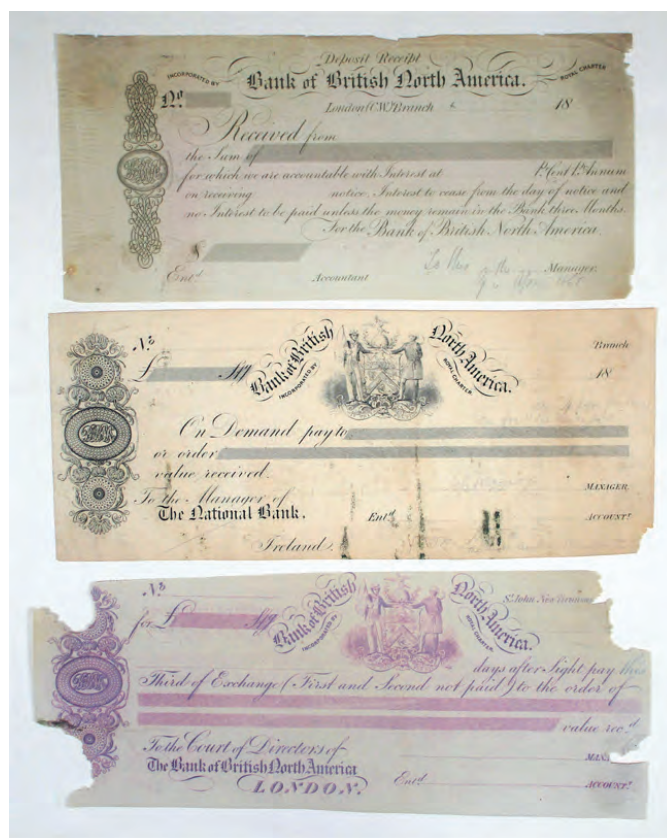 Deposit Receipt
INCORPORATED BY Bank of British North America. ROYAL CHARTER
No. London (C.W.) Branch 18
Received from
the Sum of
for which we are accountable with Interest at Pr Cent Pr Annum
on receiving notice. Interest to cease from the day of notice and
no Interest to be paid unless the money remain in the Bank three Months.
For the Bank of British North America
$
Manager.
Entd. Accountant
No. Bank of British North America. Branch
£ Stg INCORPORATED BY ROYAL CHARTER 18
On Demand pay to
or order
value received.
To the Manager of MANAGER
The National Bank. Entd. ACCOUNTt.
Ireland.
No. Bank of British North America. St. John New Brunswi
for £ Stg INCORPORATED BY ROYAL CHARTER
days after Sight pay this
Third of Exchange (First and Second not paid) to the order of
value recd.
To the Court of Directors of
The Bank of British North America MANA
LONDON. Entd. ACCOUNTt.